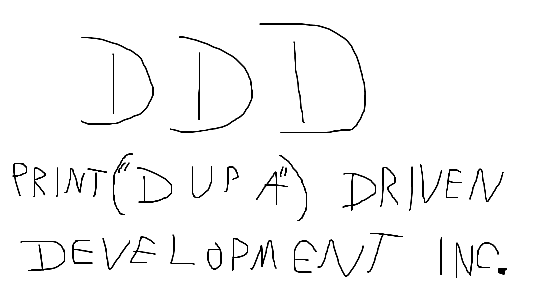 DDD
PRINT("D UP A") DRIVEN
DEVELOPMENT INC.